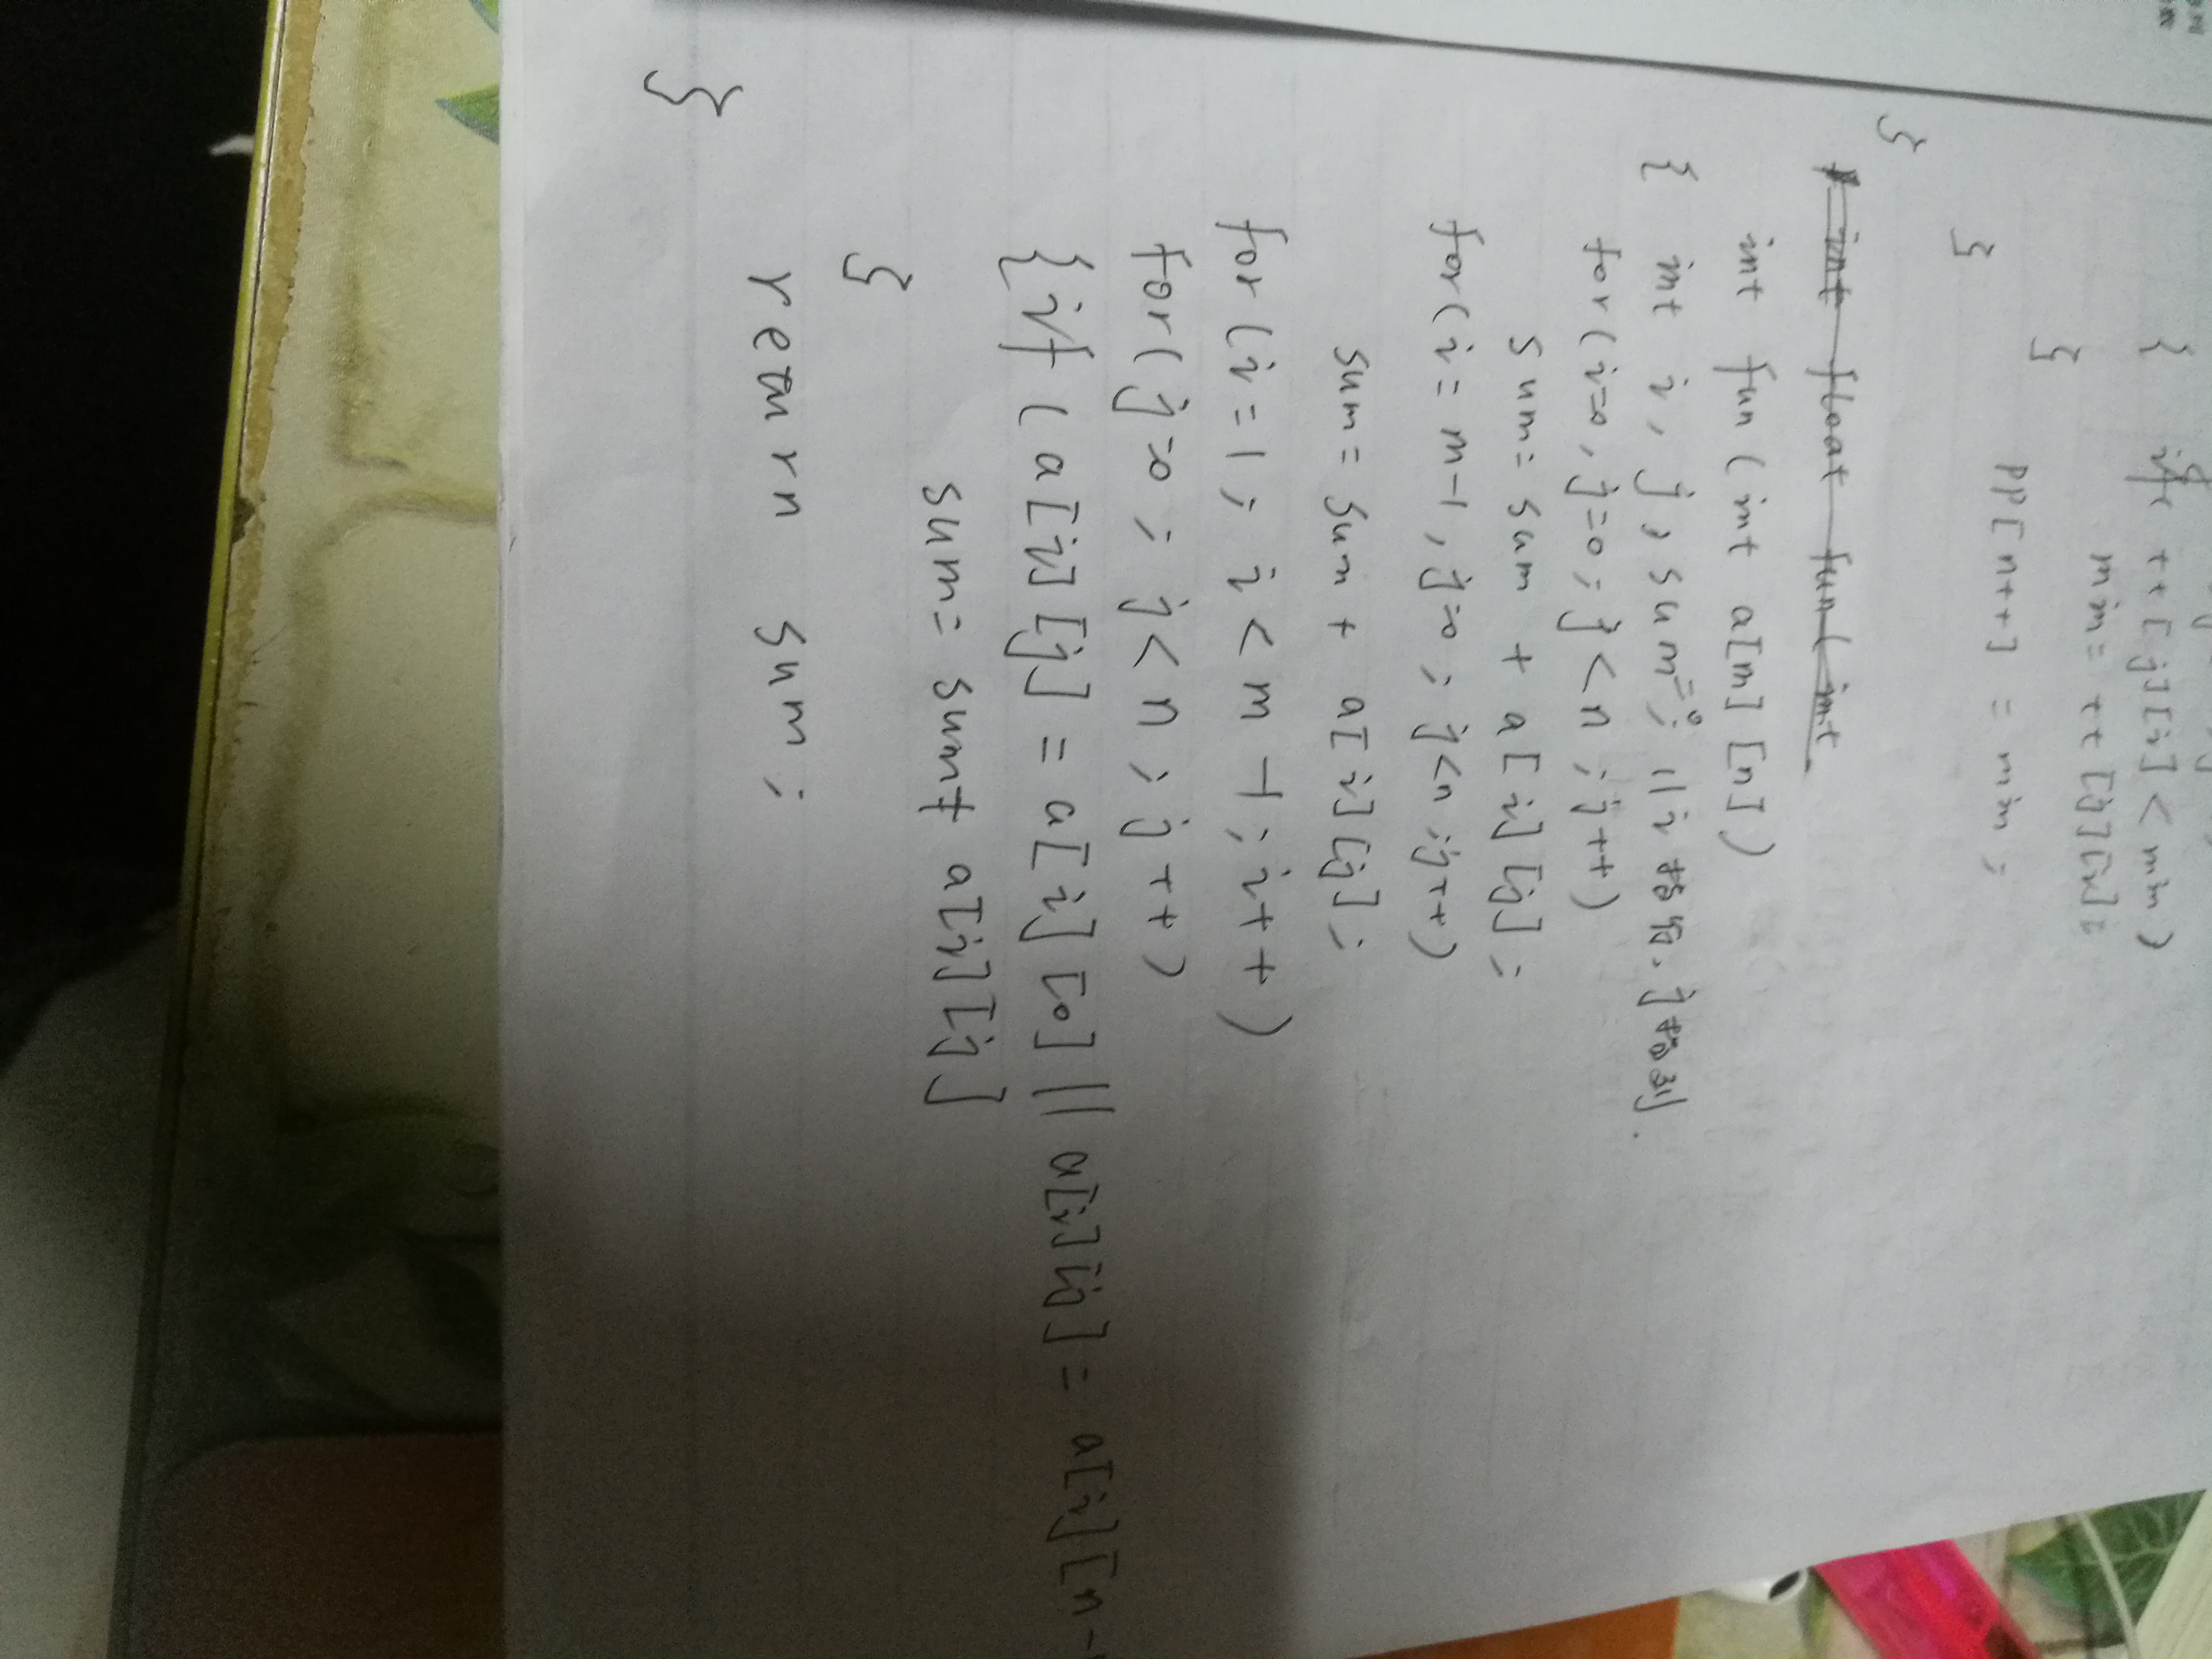 { if( tt[j][i]<min)
min= tt[j][i];
}
PP[n++] = min;
}
}
int float fun(int
int fun(int a[m][n])
{ int i, j, sum=0; //i 指行. j指列.
for(i=0, j=0; j<n; j++)
sum= sum + a[i][j];
for(i= m-1, j=0; j<n; j++)
sum= sum + a[i][j];
for(i=1; i<m-1; i++)
for(j=0; j<n; j++)
{if (a[i][j] = a[i][0] || a[i][j] = a[i][n-
sum= sum+ a[i][j]
}
return sum;
}